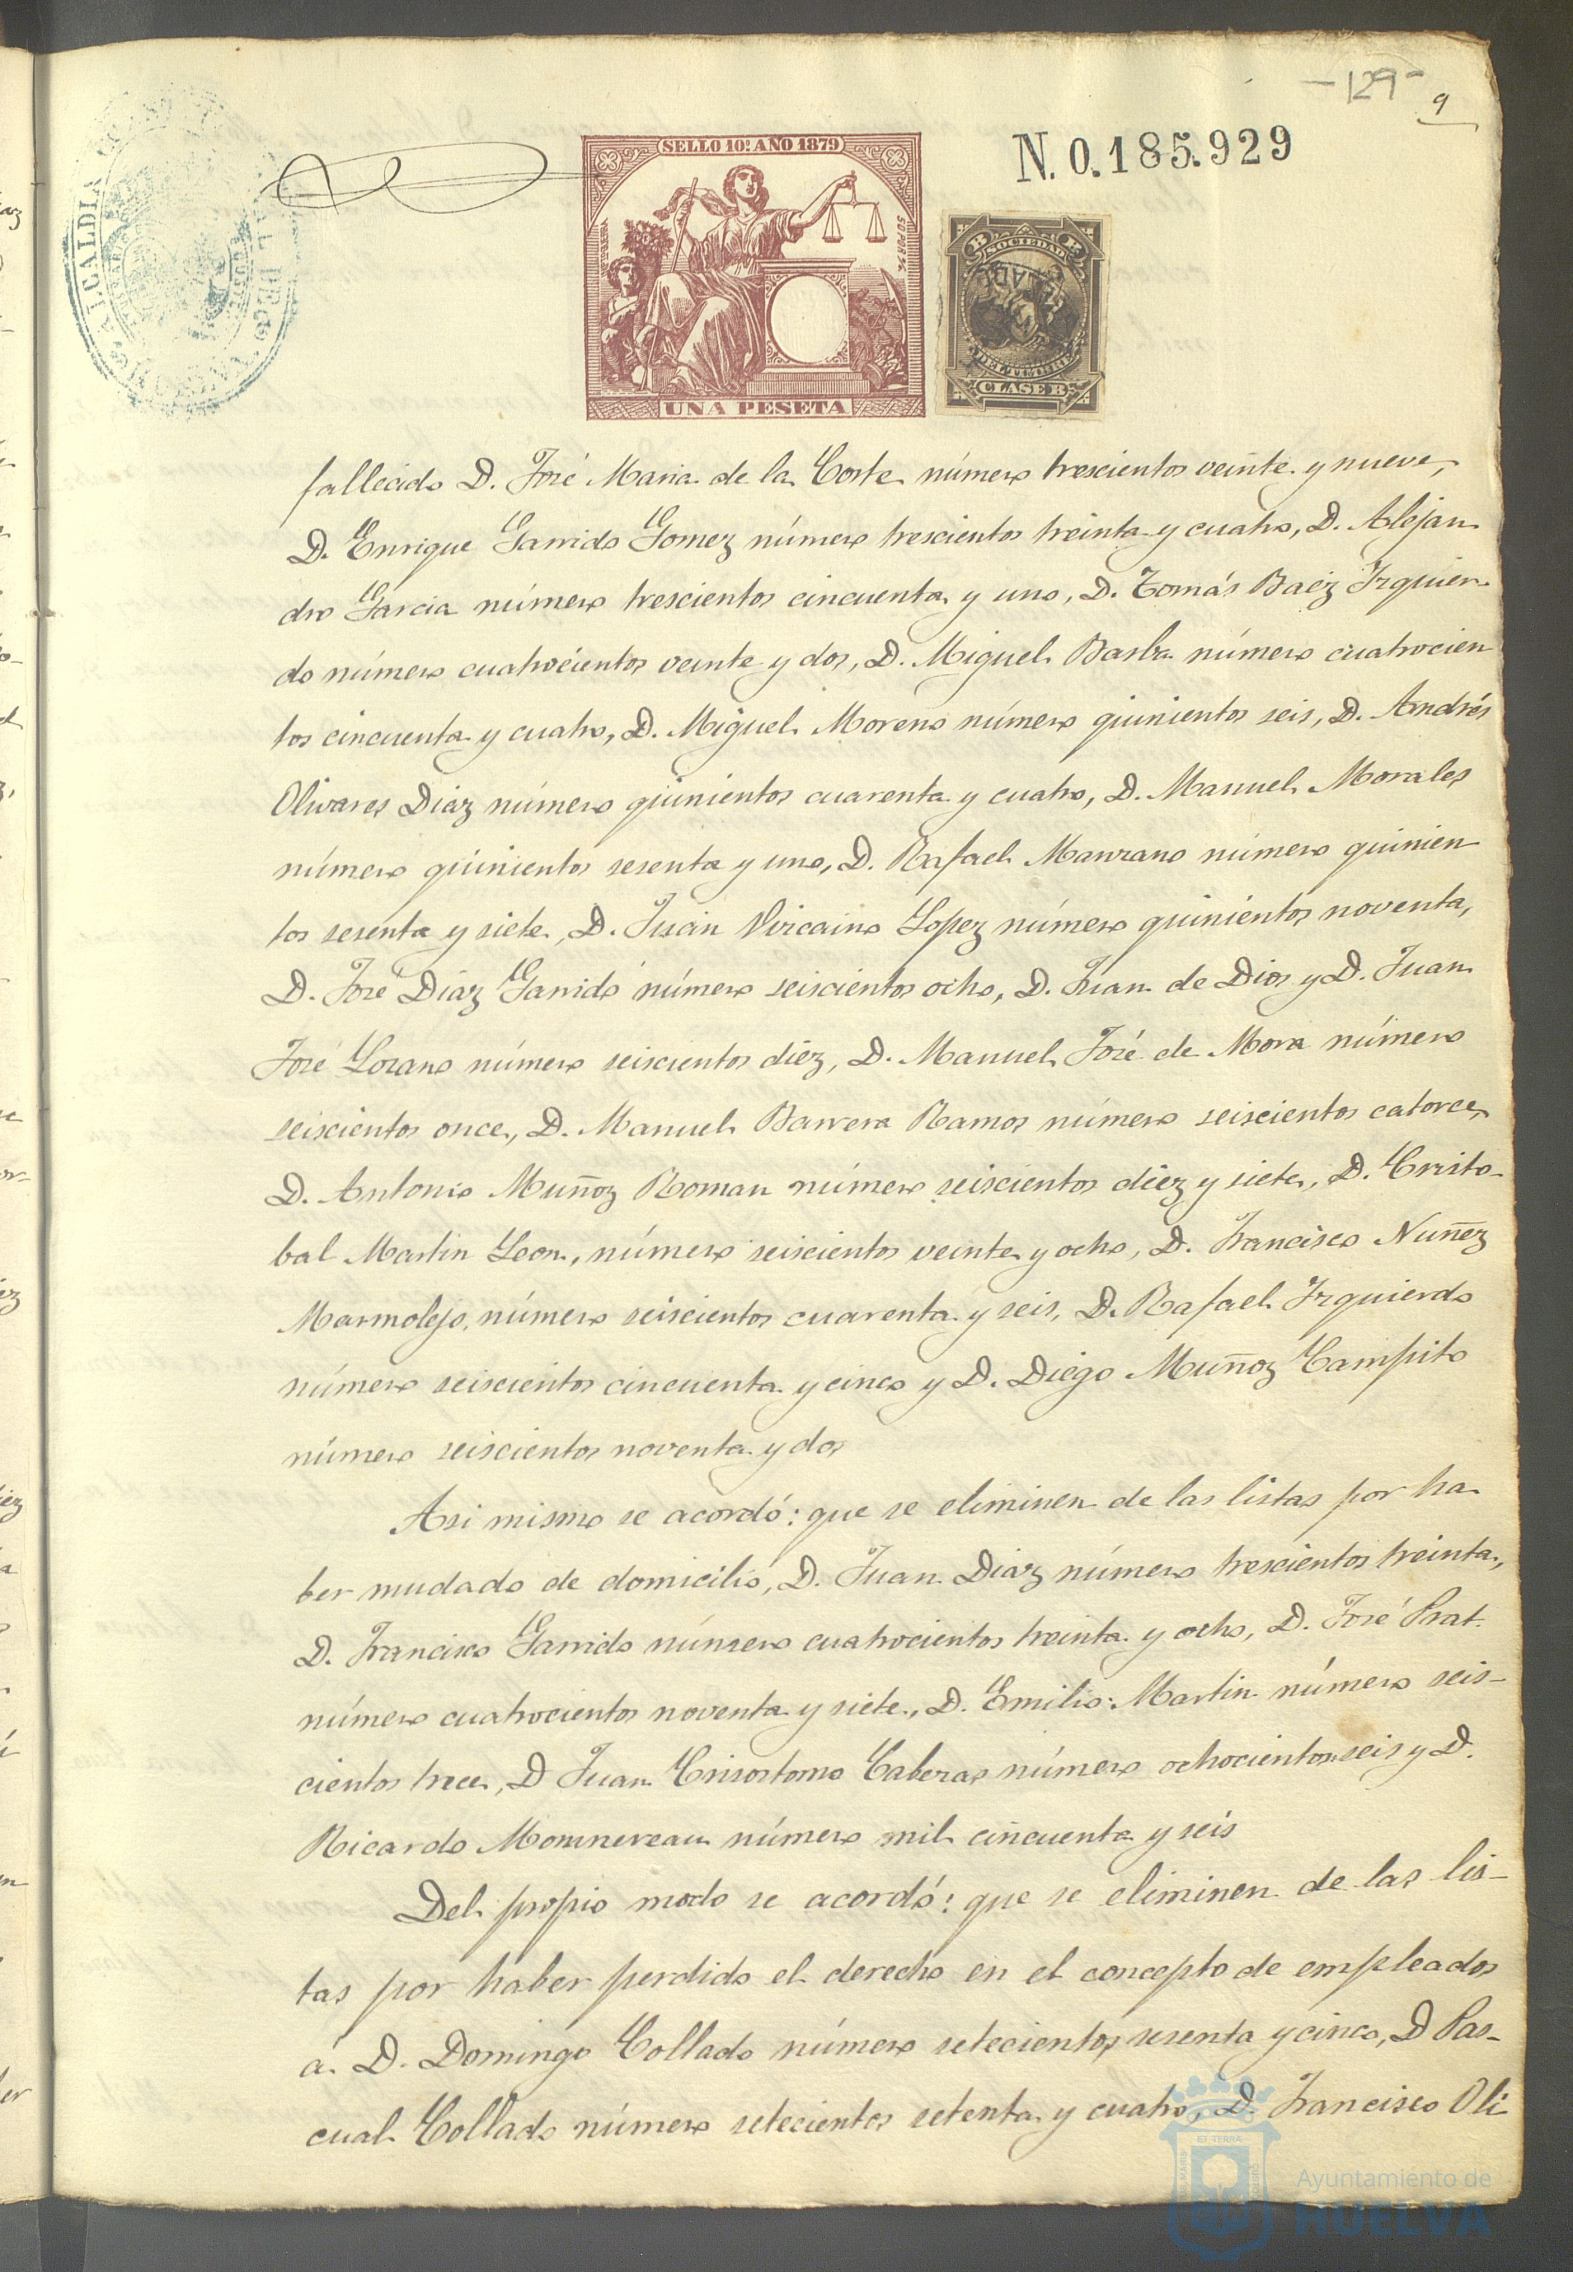 -129-
9
N. 0.185.929
SELLO 10º AÑO 1879
UNA PESETA
SOCIEDAD
DEL TIMBRE
CLASE B
ALCALDIA
fallecido D. José Maria de la Corte número trescientos veinte y nueve,
D. Enrique Garrido Gomez número trescientos treinta y cuatro, D. Alejan
dro Garcia número trescientos cincuenta y uno, D. Tomás Baez Izquier
do número cuatrocientos veinte y dos, D. Miguel Barba número cuatrocien
tos cincuenta y cuatro, D. Miguel Moreno número quinientos seis, D. Andrés
Olivares Diaz número quinientos cuarenta y cuatro, D. Manuel Morales
número quinientos sesenta y uno, D. Rafael Manzano número quinien
tos sesenta y siete, D. Juan Vizcaino Lopez número quinientos noventa,
D. José Diaz Garrido número seiscientos ocho, D. Juan de Dios y D. Juan
José Lozano número seiscientos diez, D. Manuel José de Mora número
seiscientos once, D. Manuel Barrera Ramos número seiscientos catorce,
D. Antonio Muñoz Roman número seiscientos diez y siete, D. Cristo-
bal Martin Leon, número seiscientos veinte y ocho, D. Francisco Nuñez
Marmolejo, número seiscientos cuarenta y seis, D. Rafael Izquierdo
número seiscientos cincuenta y cinco y D. Diego Muñoz Campito
número seiscientos noventa y dos
Asi mismo se acordó: que se eliminen de las listas por ha
ber mudado de domicilio, D. Juan Diaz número trescientos treinta,
D. Francisco Garrido número cuatrocientos treinta y ocho, D. José Prat
número cuatrocientos noventa y siete, D. Emilio Martin número seis-
cientos trece, D Juan Crisostomo Cabezas número ochocientos seis y D.
Ricardo número mil cincuenta y seis
Del propio modo se acordó: que se eliminen de las lis-
tas por haber perdido el derecho en el concepto de empleados
a D. Domingo Collado número setecientos sesenta y cinco, D Pas-
cual Collado número setecientos setenta y cuatro, D. Francisco Oli
Ayuntamiento de
HUELVA